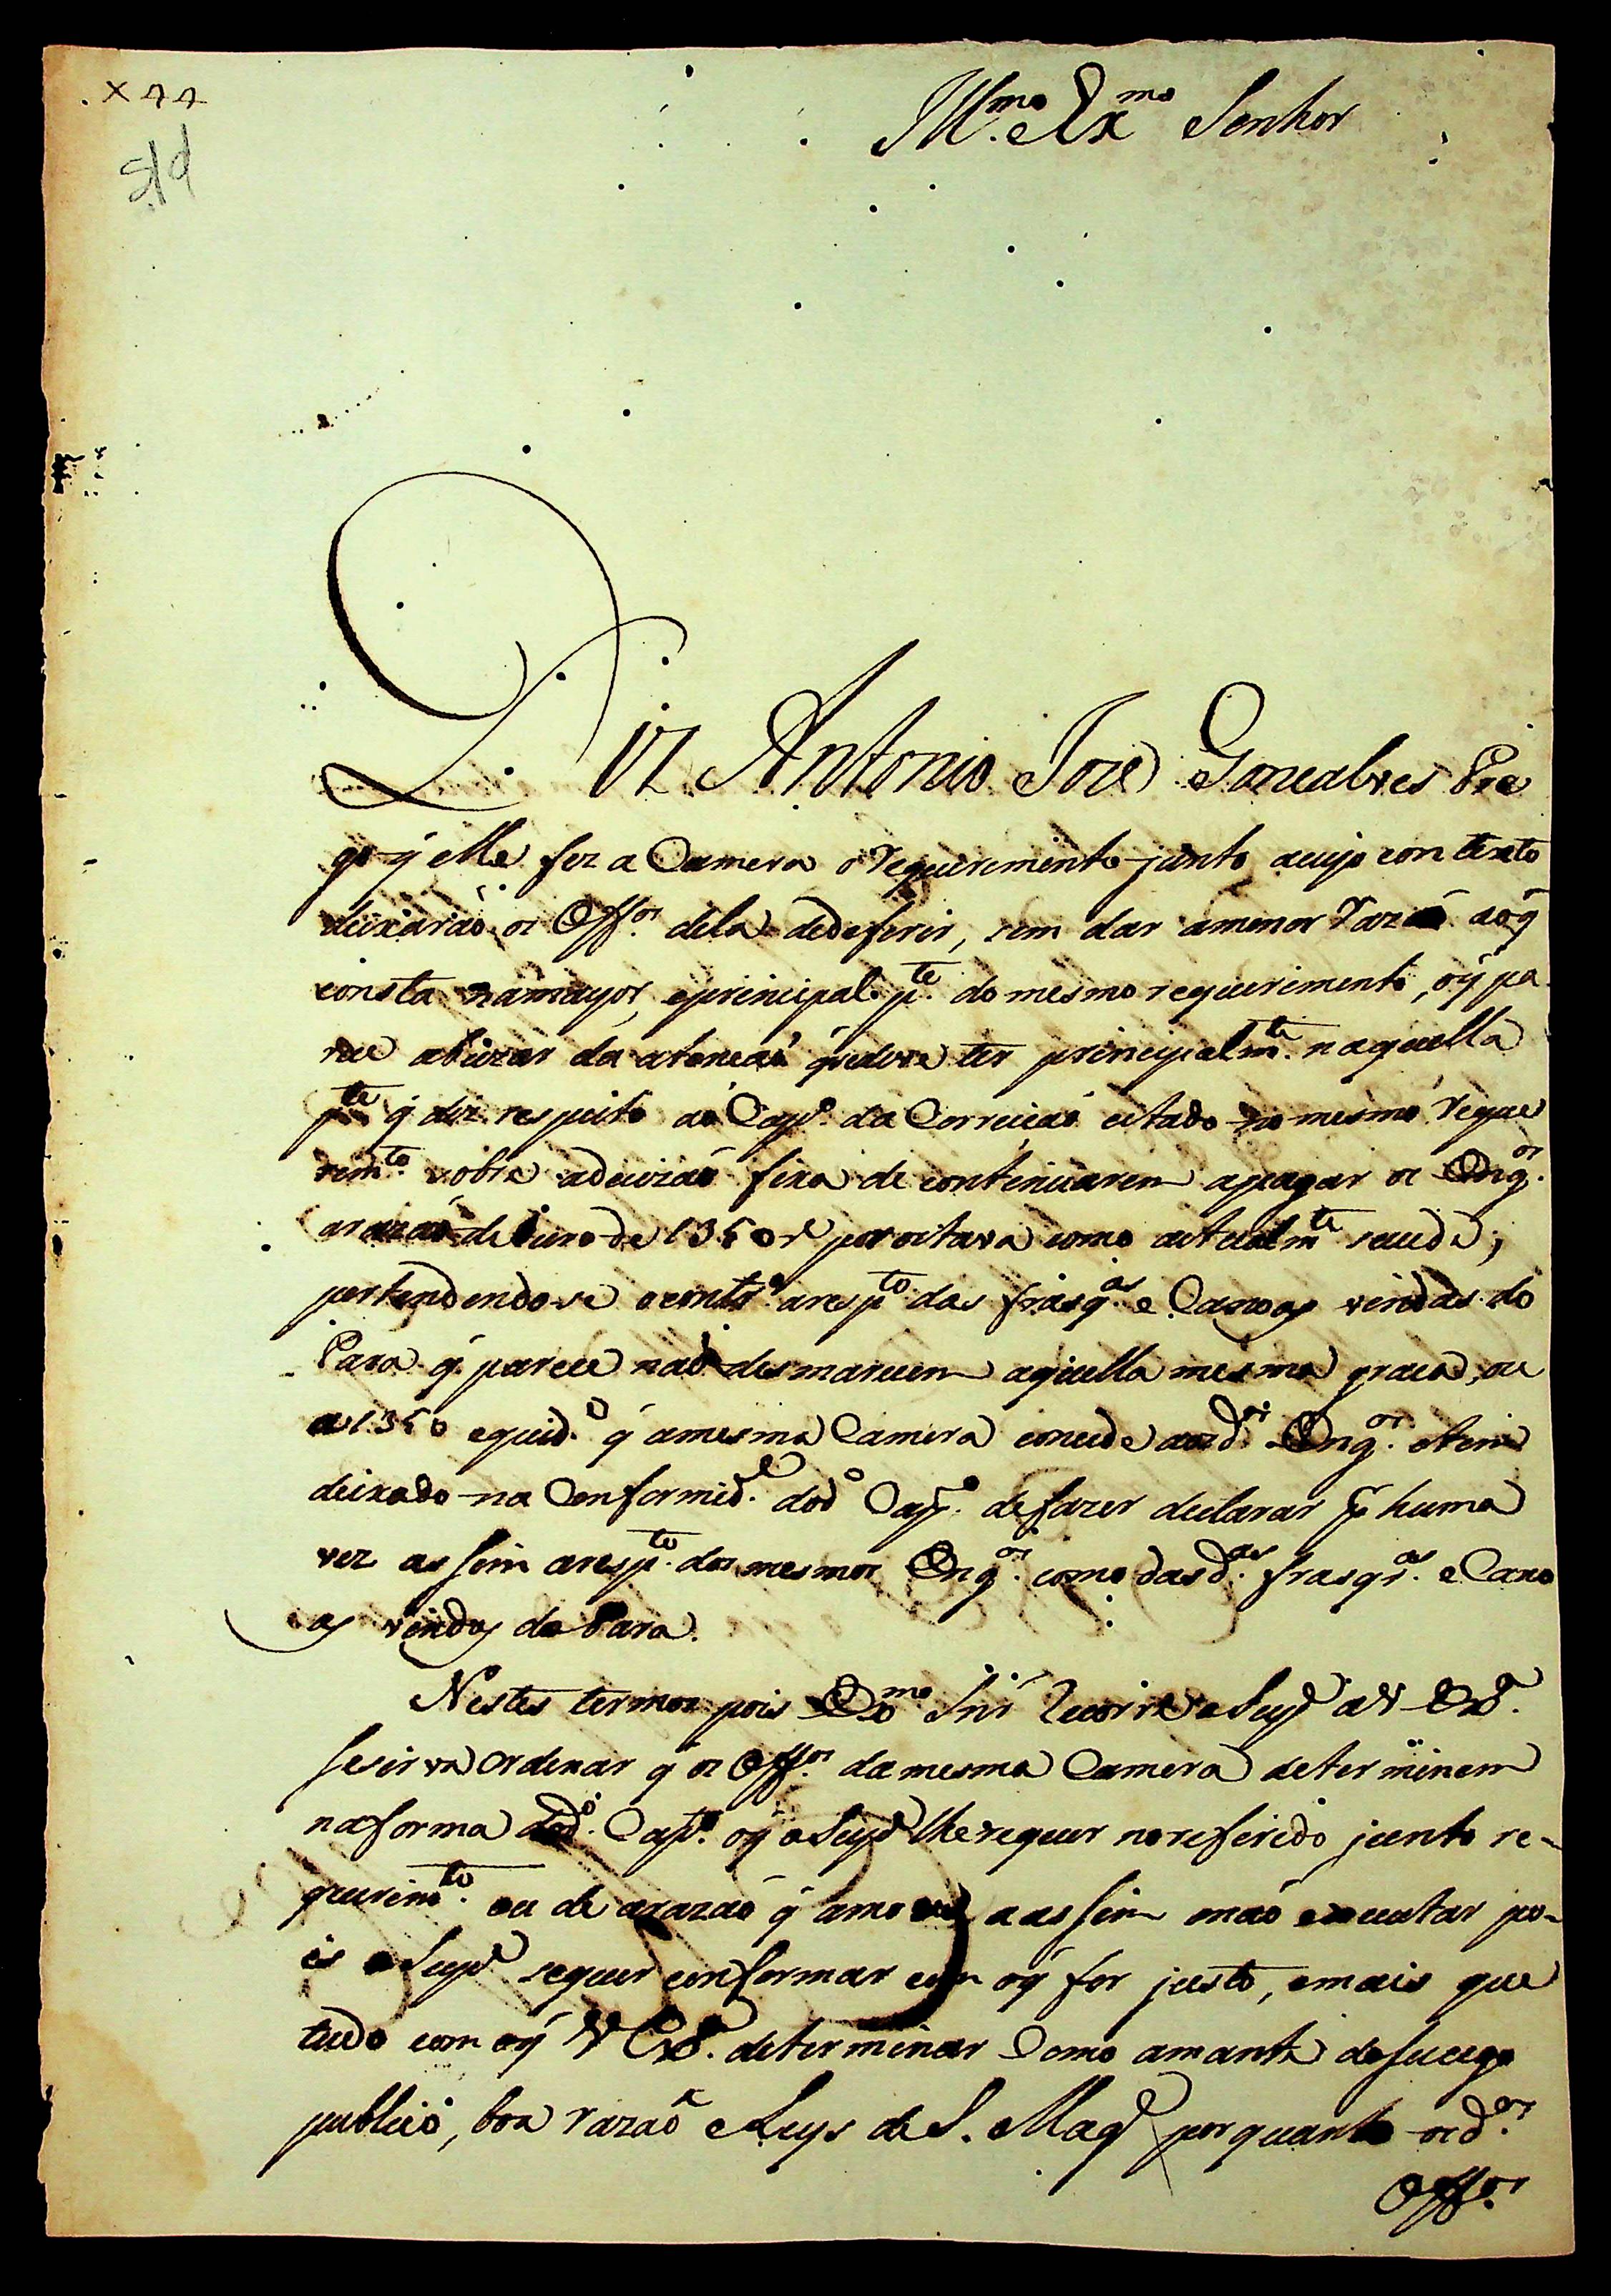 X 44
s/d
Ill.mo e Ex.mo Senhor
Diz Antonio Joze Goncalves Pre
go q̃ elle fez a Camera o Requerimento junto acujo contexto
deixaraõ os Off.es dela dedeferir, sem dar amenor Razaõ aoq̃
consta namayor, eprincipal p.te do mesmo requerimento, oq̃ pa
rece abuzar da atencaõ q̃ deve ter principalm.te naquella
p.te q̃ diz respeito ao Cap.o da Correicaõ citado no mesmo Reque
rim.to sobre adecizaõ fixa de continuarem apagar os Eng.os
arazaõ de ouro de 1350 r.s por oitava como actualm.te sucede,
pertendendo-se o contr.o aresp.to das frasq.as e Canoas vindas do
Para q̃ parece naõ desmerecem aquella mesma graca, ou
a1350 equid.e q̃ amesma Camera concede aosd.os Eng.os e tem
deixado na Conformid.e dod.o Cap.o de fazer declarar p̃ huma
vez assim aresp.to dos mesmos Eng.os como dasd.as frasqr.as e Cano
as vindas do Para.
Nestes termos pois Ex.mo Snr̃ Recorre o Sup.e a V Ex.a
se sirva ordenar q̃ os Off.es da mesma Camera determinem
naforma dod.o Cap.o oq̃ o Sup.e lhe requer no referido junto re-
querim.to ou de arazaõ q̃ amove aassim onaõ executar po-
is o Sup.e sequer conformar com oq̃ for justo, emais que
tudo com oq̃ V Ex.a determinar Como amante do sucego
publico, boa razaõ e Leys de S. Mag.e por quanto osd.os
Off.es